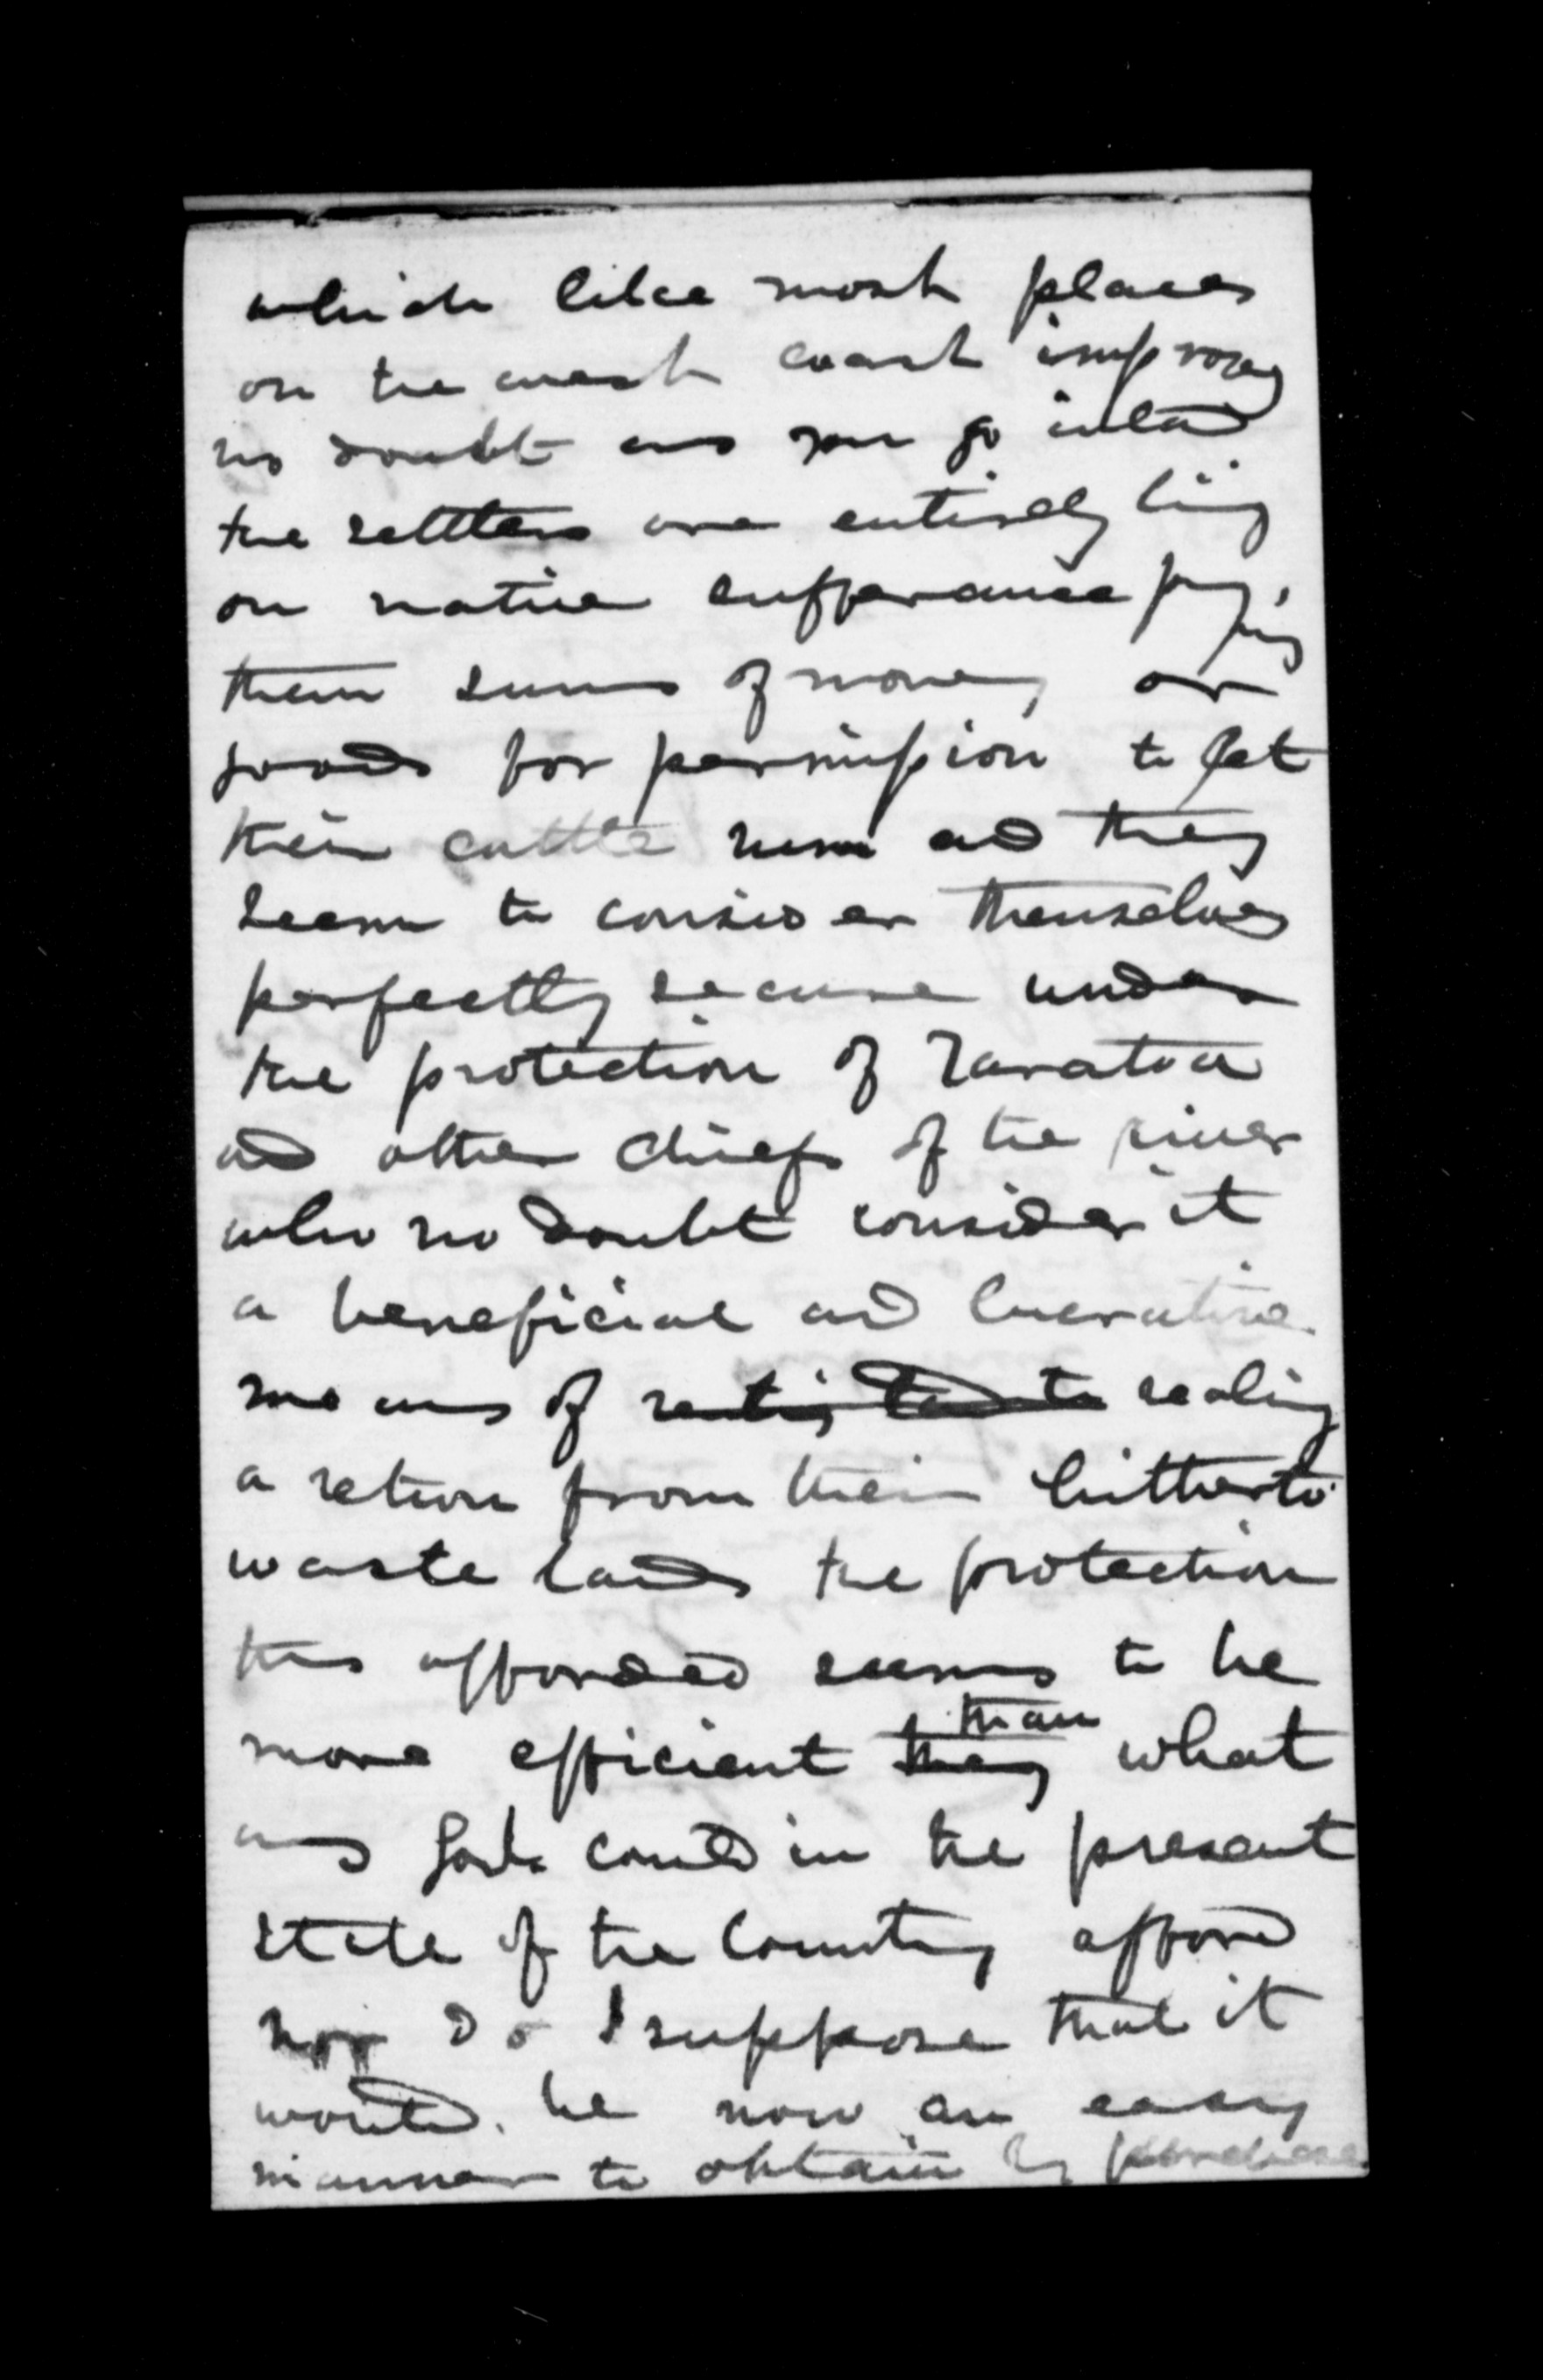 which like most places
on the west coast improves
no doubt as you go inland
the settlers are entirely living
on native sufferance paying
them sums of money or
goods for permission to let
their cattle run and they
seem to consider themselves
perfectly secure under
the protection of Taratoa
and other chiefs of the river
who no doubt consider it
a beneficial and lucrative
means of renting land to realing
a return from their hitherto
waste lands the protection
thus afforded seems to be
more efficient they than what
any Govt. could in the present
state of the Country afford
nor do I suppose that it
would be now an easy
manner to obtain by purchase